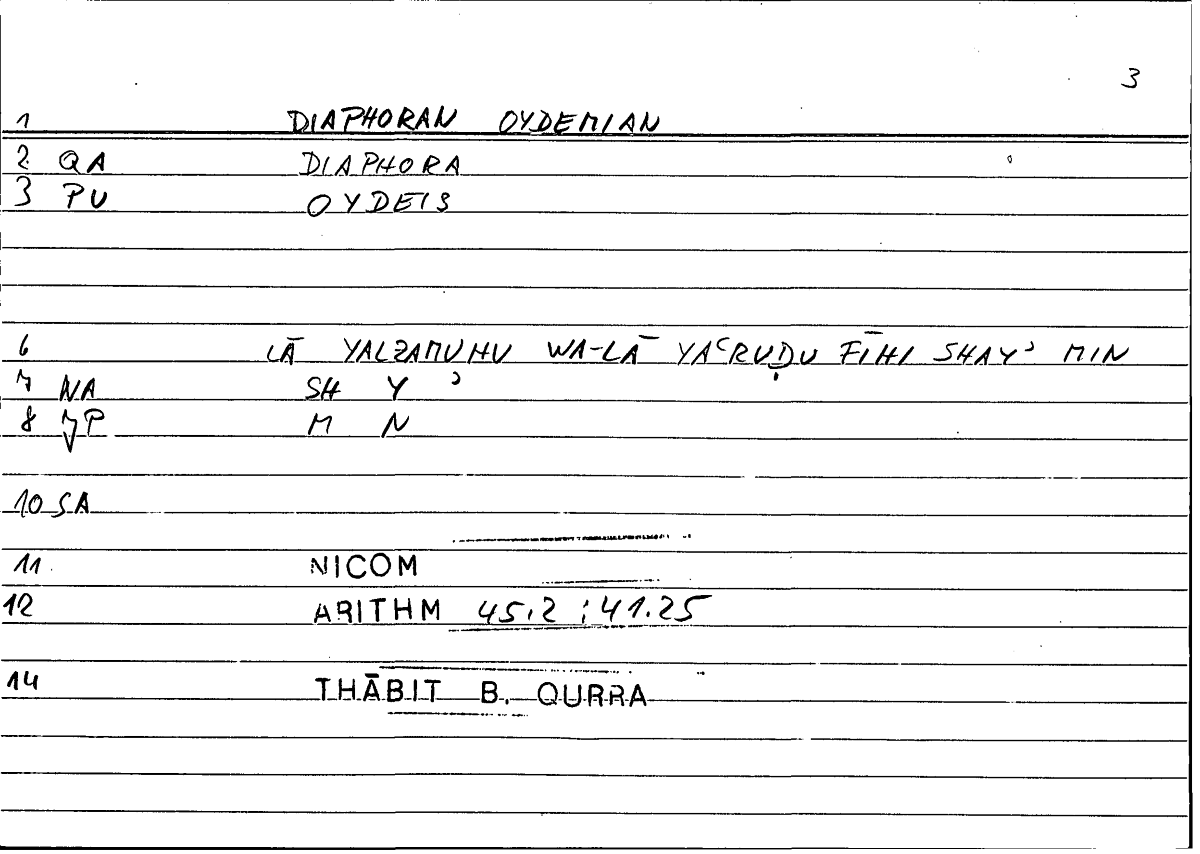 3
1 DIAPHORAN OYDEMIAN
2 QA DIAPHORA
3 PU OYDEIS
6 LĀ YALZAMUHU WA-LĀ YAʿRUḌU FĪHI SHAYʾ MIN
7 NA SH Y ʾ
8 JP M N
10 SA
11 NICOM
12 ARITHM 45.2 ; 41.25
14 THĀBIT B. QURRA